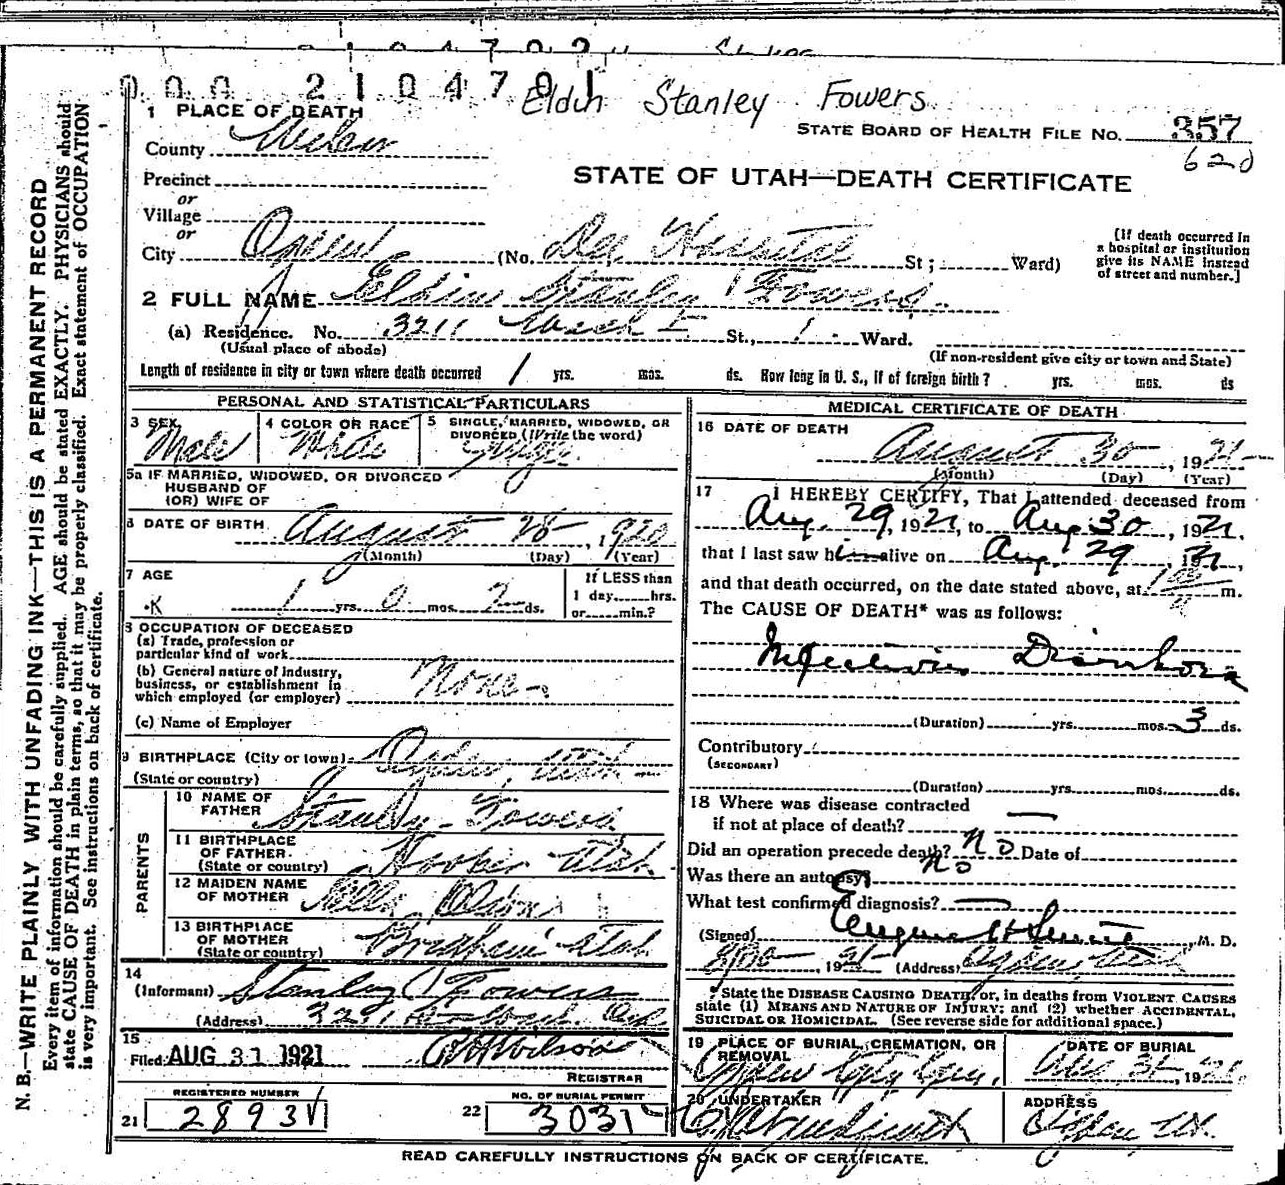 000 2104701
Eldin Stanley Fowers
1 PLACE OF DEATH
STATE BOARD OF HEALTH FILE No. 357
620
County Weber
STATE OF UTAH—DEATH CERTIFICATE
Precinct
or
Village
or
City Ogden (No. Dee Hospital St; Ward)
[If death occurred in a hospital or institution give its NAME instead of street and number.]
2 FULL NAME Eldin Stanley Fowers.
(a) Residence. No. 3211 St., 1 Ward.
(Usual place of abode)
(If non-resident give city or town and State)
Length of residence in city or town where death occurred 1 yrs. mos. ds. How long in U. S., if of foreign birth? yrs. mos. ds
PERSONAL AND STATISTICAL PARTICULARS
3 SEX Male
4 COLOR OR RACE White
5 SINGLE, MARRIED, WIDOWED, OR DIVORCED (Write the word) Single
5a IF MARRIED, WIDOWED, OR DIVORCED
HUSBAND OF
(OR) WIFE OF
6 DATE OF BIRTH August 28, 1920
(Month) (Day) (Year)
7 AGE
K 1 yrs. 0 mos. 2 ds.
If LESS than
1 day hrs.
or min.?
8 OCCUPATION OF DECEASED
(a) Trade, profession or
particular kind of work
(b) General nature of Industry,
business, or establishment in
which employed (or employer) None
(c) Name of Employer
9 BIRTHPLACE (City or town) Ogden, Utah
(State or country)
PARENTS
10 NAME OF
FATHER Stanley Fowers
11 BIRTHPLACE
OF FATHER. Hooper Utah.
(State or country)
12 MAIDEN NAME
OF MOTHER
13 BIRTHPLACE
OF MOTHER Utah
(State or country)
14
(Informant) Stanley Fowers
(Address)
15
Filed AUG 31 1921 Wilson
REGISTRAR
REGISTERED NUMBER
21 2893
NO. OF BURIAL PERMIT
22 3031
MEDICAL CERTIFICATE OF DEATH
16 DATE OF DEATH
August 30, 1921
(Month) (Day) (Year)
17 I HEREBY CERTIFY, That I attended deceased from
Aug. 29, 1921, to Aug 30, 1921,
that I last saw him alive on Aug. 29, 1921,
and that death occurred, on the date stated above, at m.
The CAUSE OF DEATH* was as follows:
Infectious Diarrhoea
(Duration) yrs. mos. 3 ds.
Contributory
(SECONDARY)
(Duration) yrs. mos. ds.
18 Where was disease contracted
if not at place of death? —
Did an operation precede death? No Date of
Was there an autopsy? No
What test confirmed diagnosis? —
(Signed) Eugene H Smith, M. D.
, 1921 (Address) Ogden Utah
*State the DISEASE CAUSING DEATH, or, in deaths from VIOLENT CAUSES
state (1) MEANS AND NATURE OF INJURY; and (2) whether ACCIDENTAL,
SUICIDAL OR HOMICIDAL. (See reverse side for additional space.)
19 PLACE OF BURIAL, CREMATION, OR
REMOVAL
Ogden City Cem.
DATE OF BURIAL
Aug 31, 1921
20 UNDERTAKER
ADDRESS
Ogden Ut.
READ CAREFULLY INSTRUCTIONS ON BACK OF CERTIFICATE.
N. B.—WRITE PLAINLY WITH UNFADING INK—THIS IS A PERMANENT RECORD
Every item of information should be carefully supplied. AGE should be stated EXACTLY. PHYSICIANS should
state CAUSE OF DEATH in plain terms, so that it may be properly classified. Exact statement of OCCUPATION
is very important. See instructions on back of certificate.